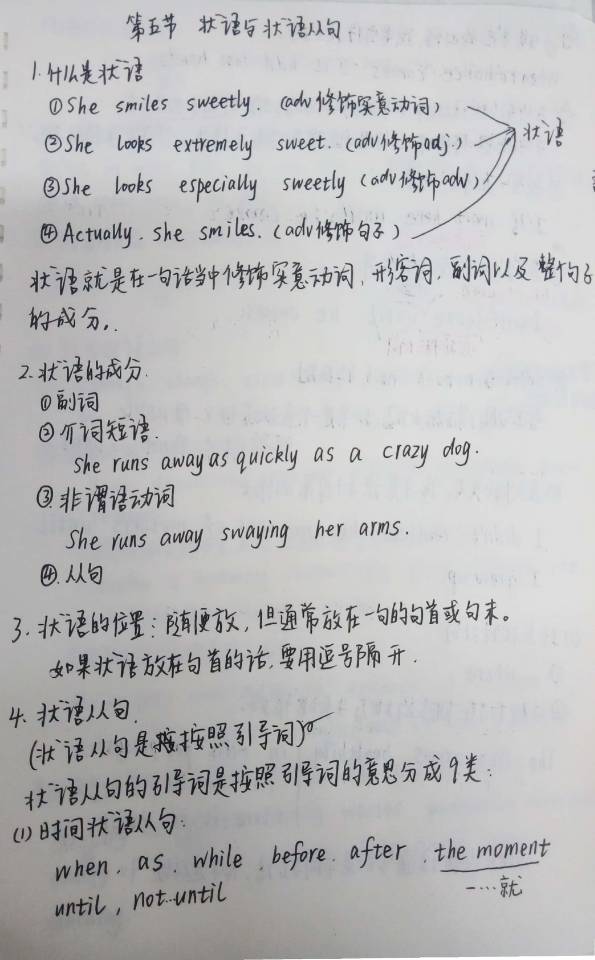 第五节 状语与状语从句
1.什么是状语
①She smiles sweetly. (adv修饰实意动词)
②She looks extremely sweet. (adv修饰adj.)
状语
③She looks especially sweetly (adv修饰adv)
④Actually. she smiles. (adv修饰句子)
状语就是在一句话当中修饰实意动词,形容词,副词以及整个句子
的成分。
2.状语的成分.
①副词
②介词短语.
She runs away as quickly as a crazy dog.
③.非谓语动词
She runs away swaying her arms.
④.从句
3.状语的位置:随便放,但通常放在一句的句首或句末。
如果状语放在句首的话,要用逗号隔开.
4.状语从句.
(状语从句是按照引导词)
状语从句的引导词是按照引导词的意思分成9类:
(1)时间状语从句:
when. as. while. before. after. the moment
一…就
until, not…until